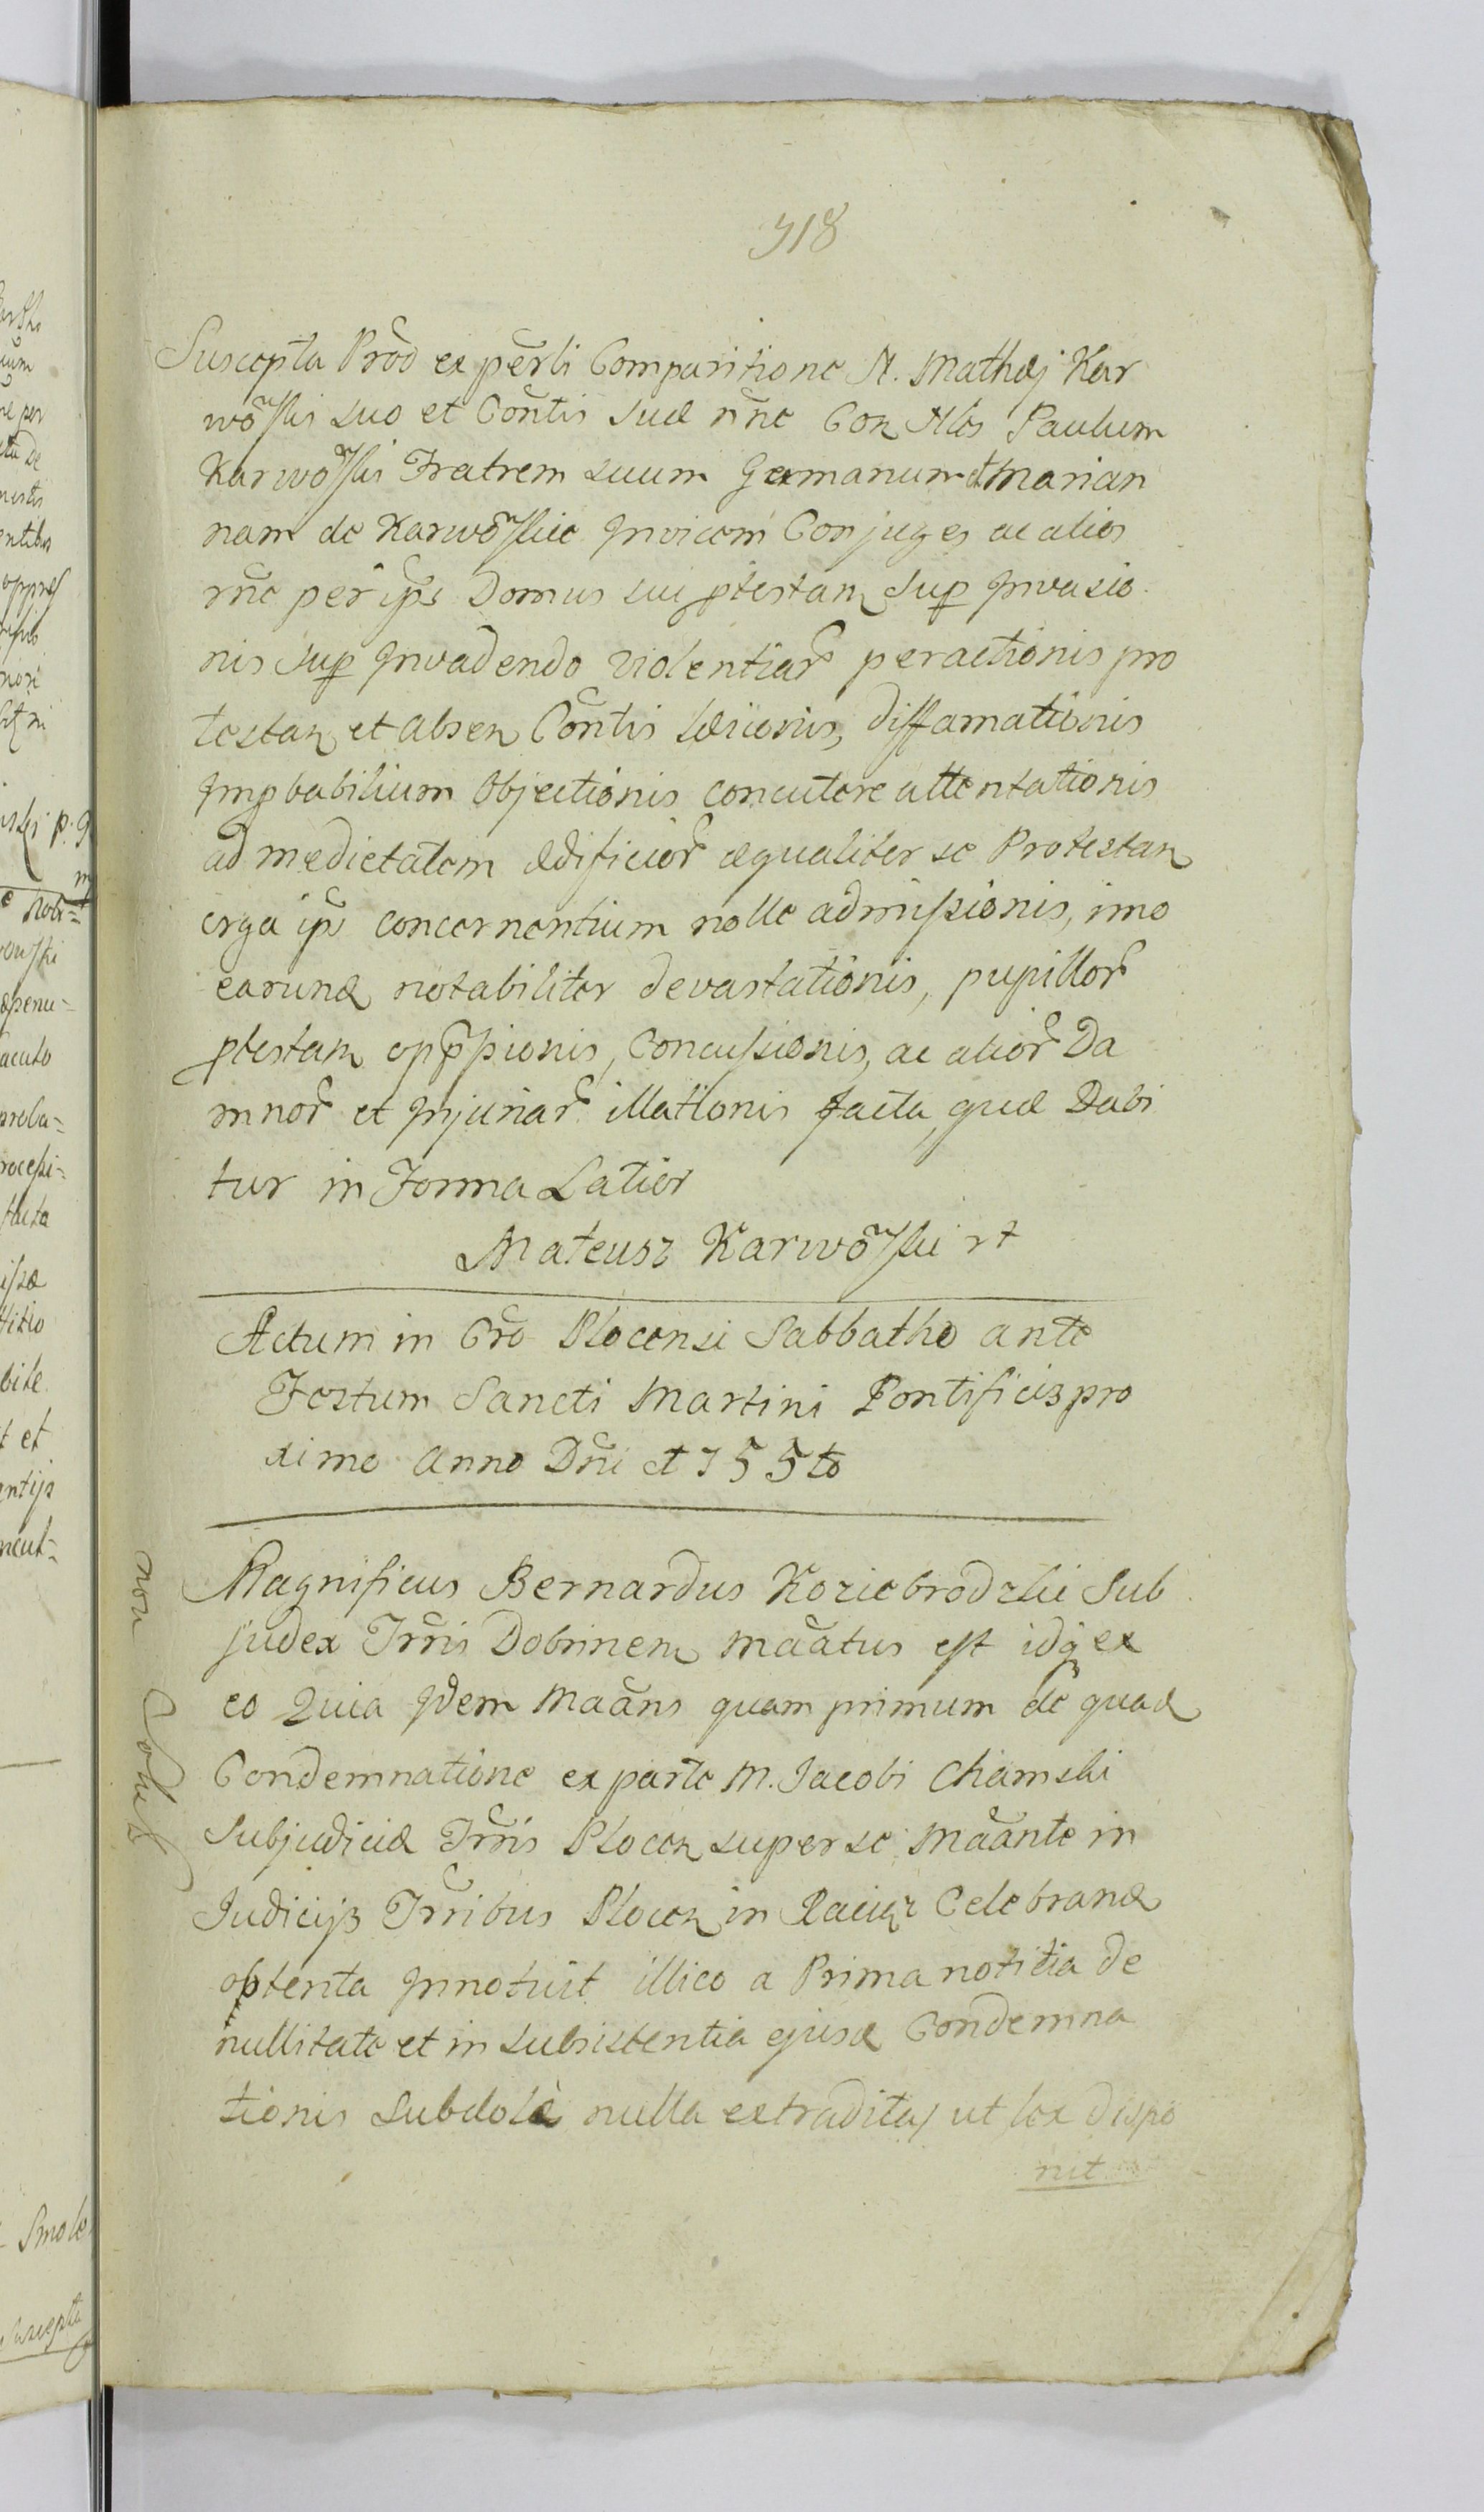 918
Suscepta Prōd ex per̄li Comparitione N. Mathæj Kar
wō̃ski suo et Con̄tis suæ nn̄e Con Nlēs Paulum
Karwō̃ski Fratrem suum Germanum et Marian
nam de Karwō̃skie Invicem Conjuges ac alios
rn̄e per ip̄s Domus sui ptestan sup Invasio
nis sup Invadendo violentiar̄ peractionis pro
testan et absen Con̄tis læsionis, diffamationis
Impbabilium Objectionis concutere attentationis
ad medietatem ædificior̄ æqualiter se Protestan
erga ip̄s concernentium nolle admissionis, imo
earund notabiliter devastationis, pupillor̄
ptestan opp̄ssionis, Concussionis, ac alior̄ Da
mnor̄ et Injuriar̄ illationis facta, quæ Dabi
tur in Forma Latior
Mateusz Karwō̃ski rt
Actum in Crō Plocensi Sabbatho ante
Festum Sancti Martini Pontificis pro
ximo Anno Dn̄i 1755to
Magnificus Bernardus Koziebrodzki Sub
judex Trr̄is Dobrinen Maātus est idq ex
eo Quia Idem Maāns quam primum de quad
Condemnatione ex parte M. Jacobi Chamski
Subjudicis Trr̄is Plocen super se Maānte in
Judicijs Trr̄ibus Plocen in Raciąz Celebrand
obtenta Innotuit illico a Prima notitia de
nullitate et in subsistentia ejusd Condemna
tionis subdolè nulla extradita, ut lex dispo
nit
non